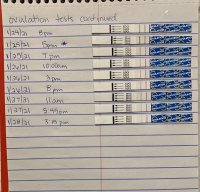 ovulation tests continued
1/24/21 8pm
1/25/21 5pm *
1/25/21 7pm
1/26/21 10:00am
1/26/21 3pm
1/26/21 8pm
1/27/21 11am
1/27/21 5:45pm
1/28/21